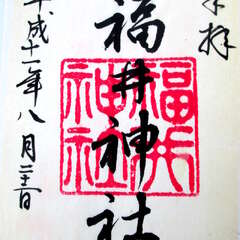 奉拝
福井神社
福井
神社
平成十一年八月